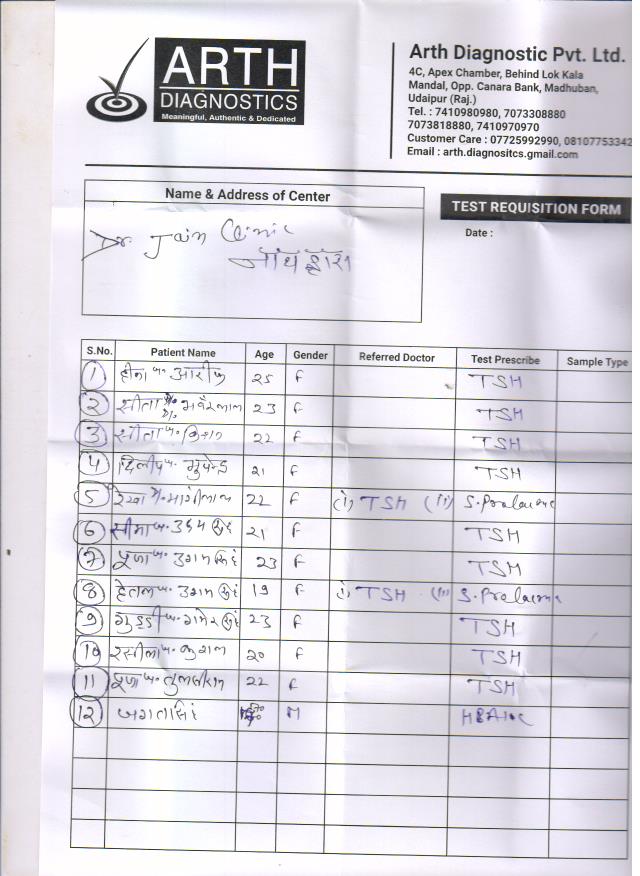 ARTH
DIAGNOSTICS
Meaningful, Authentic & Dedicated
Arth Diagnostic Pvt. Ltd.
4C, Apex Chamber, Behind Lok Kala
Mandal, Opp. Canara Bank, Madhuban,
Udaipur (Raj.)
Tel. : 7410980980, 7073308880
7073818880, 7410970970
Customer Care : 07725992990, 08107753342
Email : arth.diagnositcs.gmail.com
Name & Address of Center
TEST REQUISITION FORM
Date :
Dr. Jain Clinic
नाथद्वारा
S.No. Patient Name Age Gender Referred Doctor Test Prescribe Sample Type
1 हीना w. आरीफ 25 F TSH
2 सीता भवरलाल 23 F TSH
3 सीता w. किशन 22 F TSH
4 21 F TSH
5 रेखा मांगीलाल 22 F (i) TSH (ii) S.
6 सीमा w. उदय सिंह 21 F TSH
7 पूजा w. उगम सिंह 23 F TSH
8 हेतल w. उगम सिंह 19 F (i) TSH (ii) S.
9 गुड्डी w. गमेर सिंह 23 F TSH
10 w. कुशाल 20 F TSH
11 पूजा w. तुलसीराम 22 F TSH
12 जगतसिंह M HBA1c